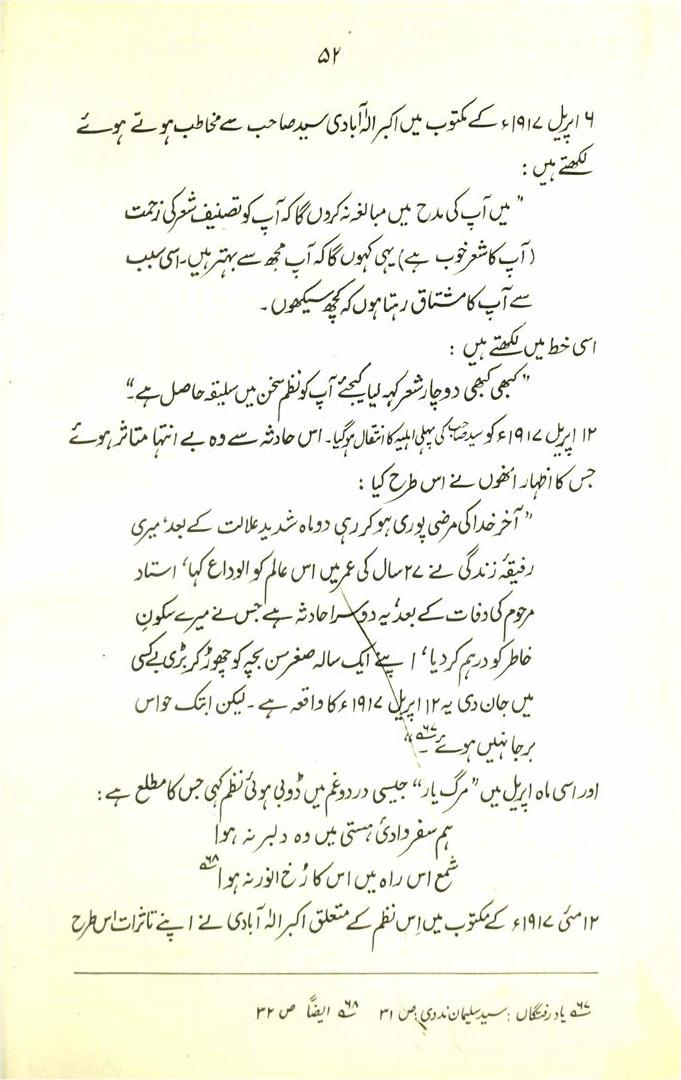 ۵۲
۶ اپریل ۱۹۱۷ء کے مکتوب میں اکبر الٰہ آبادی سید صاحب سے مخاطب ہوتے ہوئے
لکھتے ہیں :
" میں آپ کی مدح میں مبالغہ نہ کروں گا کہ آپ کو تصنیف شعر کی زحمت
(آپ کا شعر خوب ہے) یہی کہوں گا کہ آپ مجھ سے بہتر ہیں۔ اسی سبب
سے آپ کا مشتاق رہتا ہوں کہ کچھ سیکھوں ۔
اسی خط میں لکھتے ہیں :
" کبھی کبھی دو چار شعر کہہ لیا کیجئے آپ کو نظم سخن میں سلیقہ حاصل ہے۔"
۱۲ اپریل ۱۹۱۷ء کو سید صاحب کی پہلی اہلیہ کا انتقال ہوگیا۔ اس حادثہ سے وہ بے انتہا متاثر ہوئے
جس کا اظہار انھوں نے اس طرح کیا :
" آخر خدا کی مرضی پوری ہو کر رہی دو ماہ شدید علالت کے بعد، میری
رفیقۂ زندگی نے ۲۷ سال کی عمر میں اس عالم کو الوداع کہا، استاد
مرحوم کی وفات کے بعد، یہ دوسرا حادثہ ہے جس نے میرے سکونِ
خاطر کو درہم کردیا، اپنے ایک سالہ صغر سن بچہ کو چھوڑ کر بڑی بے کسی
میں جان دی یہ ۱۲ اپریل ۱۹۱۷ء کا واقعہ ہے ۔ لیکن ابتک حواس
برجا نہیں ہوئے ۶۷؎ ۔"
اور اسی ماہ اپریل میں "مرگ یار" جیسی درد و غم میں ڈوبی ہوئی نظم کہی جس کا مطلع ہے :
ہم سفر وادیٔ ہستی میں وہ دلبر نہ ہوا
شمع اس راہ میں اس کا رُخ انور نہ ہوا ۶۸؎
۱۲ مئی ۱۹۱۷ء کے مکتوب میں اِس نظم کے متعلق اکبر الٰہ آبادی نے اپنے تاثرات اس طرح
۶۷؎ یاد رفتگاں : سید سلیمان ندوی : ص ۳۱ ۶۸؎ ایضًا ص ۳۲